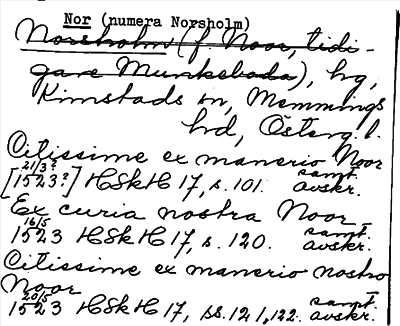 Nor (numera Norsholm)
Norsholm (f Noor, tidi-
gare Munkeboda), hg,
Kimstads sn, Memmings
hd, Österg. l.
Citissime ex manerio Noor
[21/3? 1523?] HSkH 17, s. 101. samt. avskr.
Ex curia nostra Noor
16/5 1523 HSkH 17, s. 120. samt. avskr.
Citissime ex manerio nostro
Noor
20/5 1523 HSkH 17, ss. 121, 122. samt. avskr.